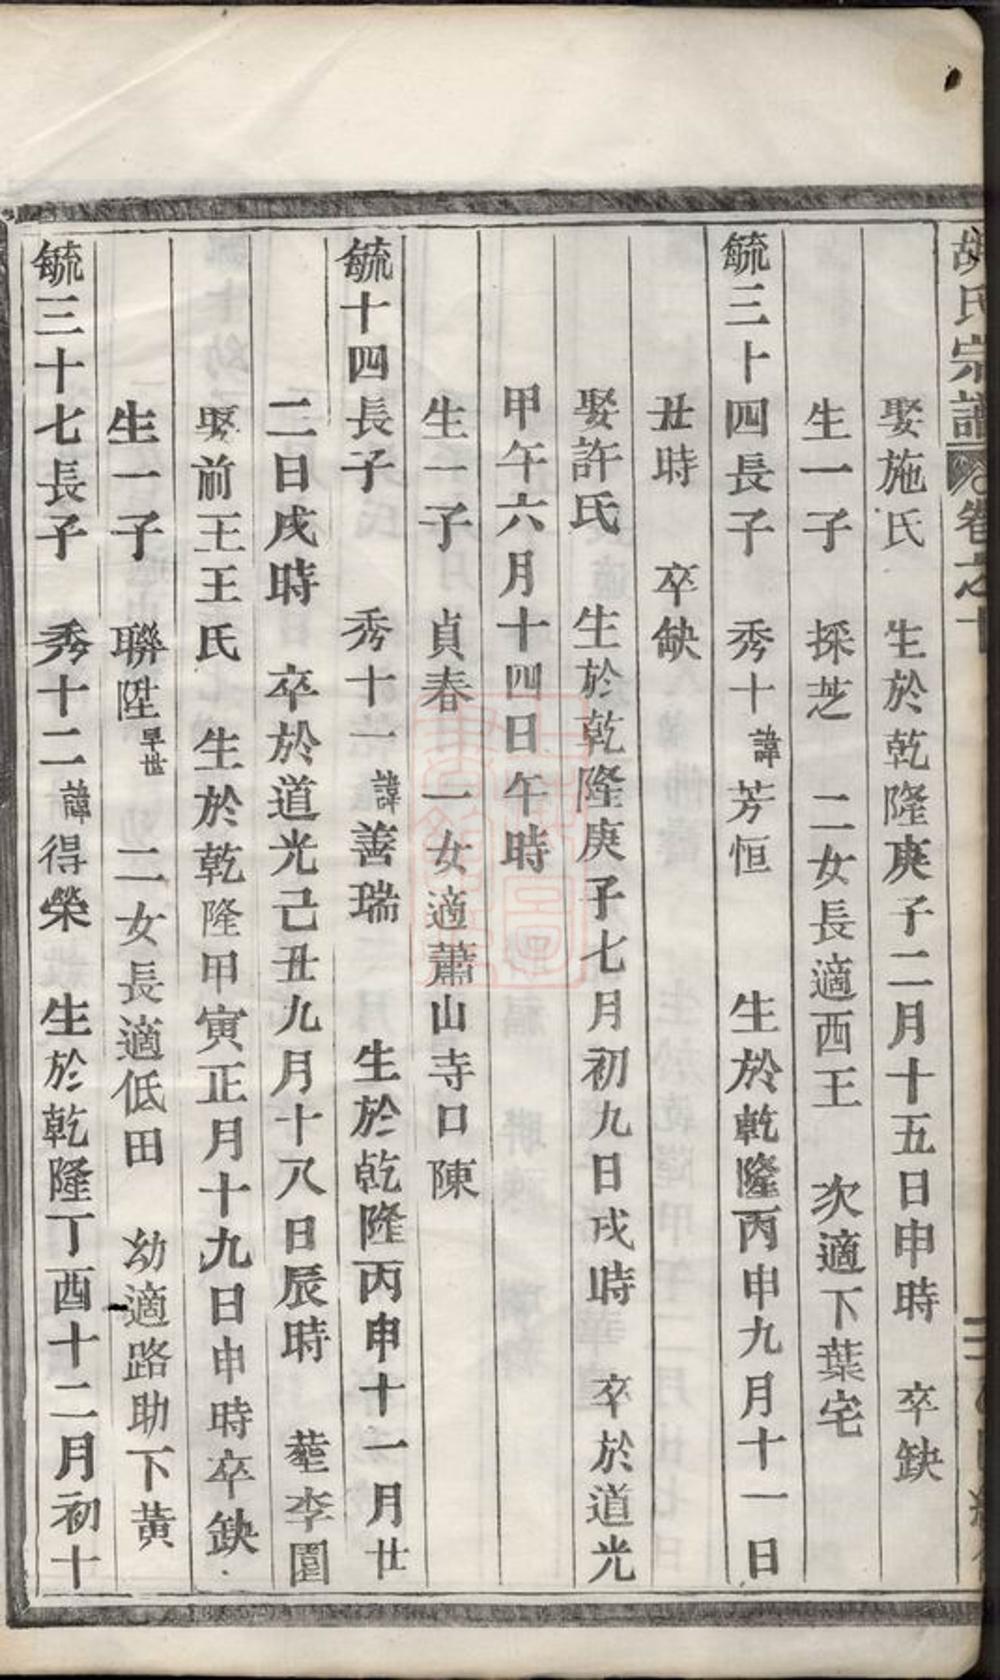 胡氏宗譜 卷之十
娶施氏 生於乾隆庚子二月十五日申時 卒缺
生一子 採芝 二女長適西王 次適下葉宅
毓三十四長子 秀十諱芳恒 生於乾隆丙申九月十一日
丑時 卒缺
娶許氏 生於乾隆庚子七月初九日戌時 卒於道光
甲午六月十四日午時
生一子 貞春 一女適蕭山寺口陳
毓十四長子 秀十一諱善瑞 生於乾隆丙申十一月廿
二日戌時 卒於道光己丑九月十八日辰時 塟李園
娶前王王氏 生於乾隆甲寅正月十九日申時卒缺
生一子 聯陞早世 二女長適低田 幼適路助下黃
毓三十七長子 秀十二諱得榮 生於乾隆丁酉十二月初十